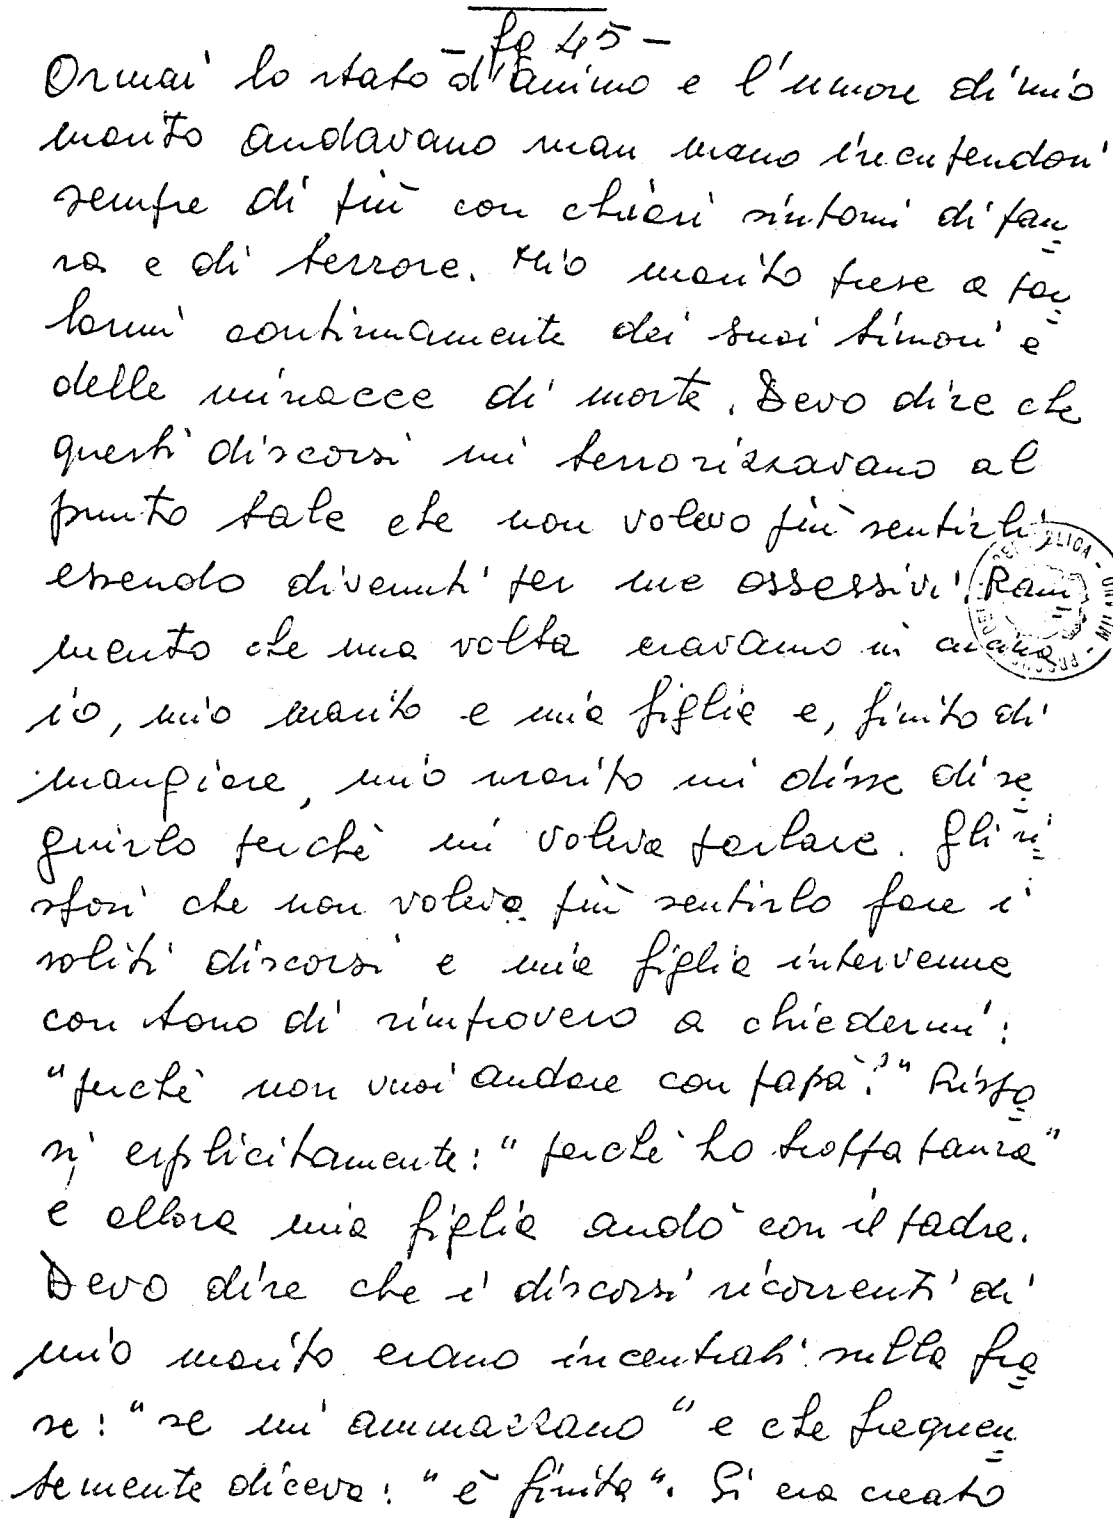 - fg 45 -
Ormai lo stato d'animo e l'umore di mio
marito andavano man mano incupendosi
sempre di più con chiari sintomi di pau
ra e di terrore. Mio marito prese a par
larmi continuamente dei suoi timori e
delle minacce di morte. Devo dire che
questi discorsi mi terrorizzavano al
punto tale che non volevo più sentirli,
essendo divenuti per me ossessivi. Ram
mento che una volta eravamo in cucina
io, mio marito e mia figlia e, finito di
mangiare, mio marito mi disse di se
guirlo perchè mi voleva parlare. Gli ri
sposi che non volevo più sentirlo fare i
soliti discorsi e mia figlia intervenne
con tono di rimprovero a chiedermi:
"perchè non vuoi andare con papà?" Rispo
si esplicitamente: "perchè ho troppa paura"
e allora mia figlia andò con il padre.
Devo dire che i discorsi ricorrenti di
mio marito erano incentrati sulla fra
se: "se mi ammazzano" e che frequen
temente diceva: "è finita". Si era creato